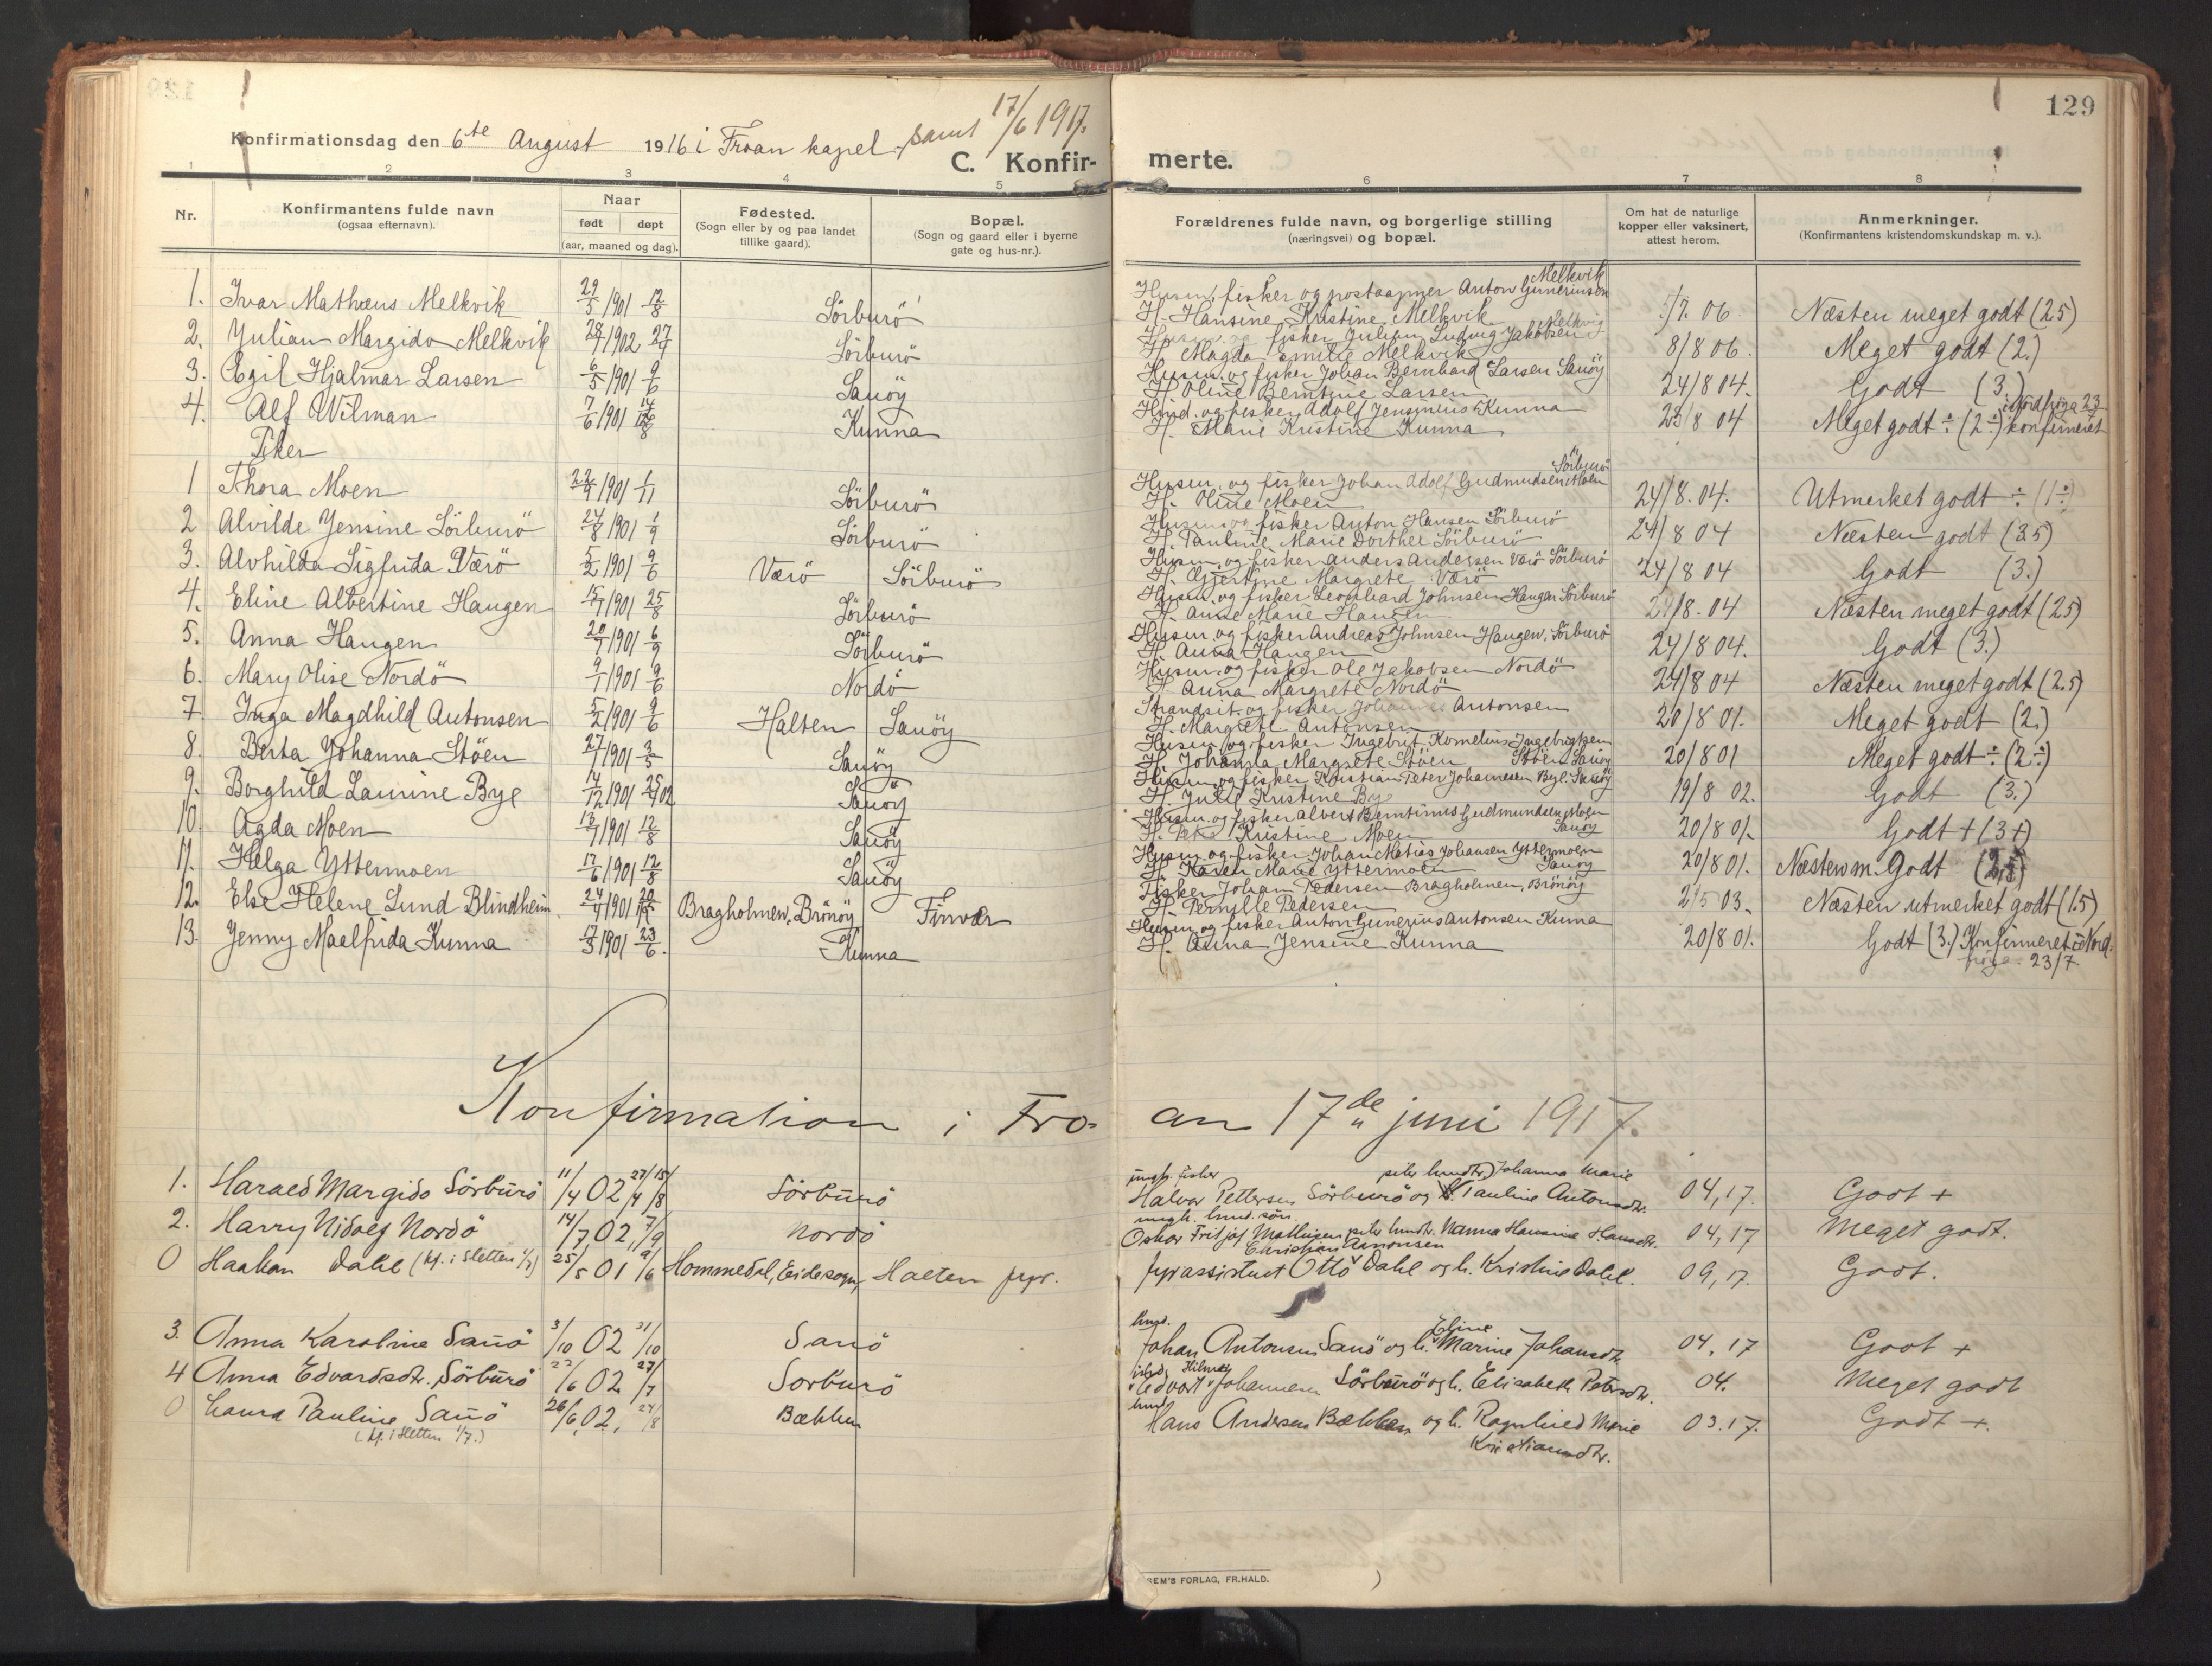 129
Konfirmationsdag den 6te August 1916 i Froan kapel, samt 17/6 1917.
C. Konfir- merte.
1 2 3 4 5 6 7 8
Nr. Konfirmantens fulde navn (ogsaa efternavn). Naar født døpt (aar, maaned og dag). Fødested. (Sogn eller by og paa landet tillike gaard). Bopæl. (Sogn og gaard eller i byerne gate og hus-nr.). Forældrenes fulde navn, og borgerlige stilling (næringsvei) og bopæl. Om hat de naturlige kopper eller vaksinert, attest herom. Anmerkninger. (Konfirmantens kristendomskundskap m. v.).
Melkvik
1. Ivar Mathæus Melkvik 29/5 1901 12/8 Sörburö Husm. fisker og postaapner Anton Gunerius en 06. Næsten meget godt (2.5)
H. Hansine Kristine Melkvik
2. Julian Margido Melkvik 28/1 1902 27/4 Sörburö fisker Julian Ludvig Jakobsen Melkvig 8/8 06. Meget godt (2.)
H. Magda Emilie Melkvik
3. Egil Hjalmar Larsen 6/5 1901 9/6 Sauöy Husm. og fisker Johan Bernhard Larsen Sauöy 24/8 04. Godt (3.)
H. Oline Berntine Larsen
4. Alf Wilman 7/6 1901 Kunna og fisker Adolf Jensenius Kunna 23/8 04 Meget godt ÷ (2÷) i Nordfröja 23/7 konfirmeret
H. Marie Kristine Kunna
Piker
1 Thora Moen 22/9 1901 1/11 Sörburö Husm. og fisker Johan Adolf Gudmundsen Moen Sörburö 24/8. 04. Utmerket godt ÷ (1÷)
H. Oline Moen
2 Alvilde Jensine Sörburö 24/8 1901 1/9 Sörburö Husm. og fisker Anton Hansen Sörburö 24/8 04 Næsten godt (3.5)
H. Pauline Marie Dorthee Sörburö
3. Alvhilda Sigfrida Værö 5/2 1901 9/6 Værö Sörburö Husm. og fisker Anders Andersen Værö Sörburö 24/8 04 Godt (3.)
H. Gjertine Margrete Værö
4. Eline Albertine Haugen 15/7 1901 25/8 Sörburö Husm. og fisker Leonhard Johnsen Haugen Sörburö 24/8. 04 Næsten meget godt (2.5)
H. Anne Marie Haugen
5. Anna Haugen 20/7 1901 6/9 Sörburö Husm. og fisker Andreas Johnsen Haugen, Sörburö 24/8 04. Godt (3.)
H. Anna Haugen
6. Mary Olise Nordö 9/1 1901 9/6 Nordö Husm. og fisker Ole Jakobsen Nordö 24/8 04 Næsten meget godt (2.5)
H. Anna Margrete Nordö
7. Inga Magdhild Antonsen 5/2 1901 9/6 Halten Sauöy Strandsit. og fisker Johannes Antonsen 20/8 01. Meget godt (2.)
H. Margrete Antonsen
8. Berta Johanna Stöen 27/1 1901 3/5 Sauöy Husm. og fisker Ingebrigt Kornelius Ingebrigtsen 20/8 01 Meget godt ÷ (2÷)
H. Johanna Margrete Stöen Stöen Sauöy
9. Borghild Laurine Bye 14/12 1901 Sauöy Husm. og fisker Kristian Peter Johannesen Bye. Sauöy 19/8 02. Godt (3.)
H. Julie Kristine Bye
10. Agda Moen 13/7 1901 12/8 Sauöy Husm. og fisker Albert Berntinus Gudmundsen Moen Sauöy 20/8 01. Godt + (3+)
H. Kristine Moen
11. Helga Yttermoen 17/6 1901 12/8 Sauöy Husm. og fisker Johan Matias Johansen Yttermoen Sauöy 20/8 01. Næsten m. Godt
H. Karen Marie Yttermoen
12. Else Helene Lund Blindheim 24/4 1901 Bragholmen, Brönöy Finvær Fisker Johan Pedersen Bragholmen, Brönöy 2/5 03. Næsten utmerket godt (1.5)
H. Pernille Pedersen
13. Jenny Maelfrida Kunna 17/3 1901 23/6. Kunna Husm. og fisker Anton Gunerius Antonsen Kunna 20/8 01. Godt (3.) Konfirmeret i Nord-fröja. 23/7
H. Anna Jensine Kunna
Konfirmation i Fro- an 17de juni 1917.
1. Harald Margido Sörburö 11/4 02 27/4 15/8 Sörburö ungk. fisker Halvor Pettersen Sörburö og pike husdtr. Johanna Marie Pauline Antonsdtr. 04, 17. Godt +
2. Harry Nidolf Nordö 14/7 02, 7/9 Nordö ungk. husm. sön Oskar Fritjof Mathisen pike husdtr. Nanna Hansine Hansdtr. 04, 17 Meget godt.
0 Haakon Dahl (kf. i Sletten 1/7) 25/5 01 9/6 Hommedal, Eide sogn, Halten fyr. fyrassistent Otto Christian Aamonsen Dahl og h. Kristine Dahl. 09, 17. Godt.
3. Anna Karoline Sauö 3/10 02 31/10 Sauö husm. Johan Antonsen Sauö og h. Eline Marine Johansdtr. 04, 17 Godt +
4 Anna Edvardsdtr. Sörburö 22/6 02 27/7 Sörburö Edvart Hilmar Johannesen Sörburö og h. Elisabeth Petersdtr. 04. Meget godt
0 Laura Pauline Sauö 26/6, 02, 24/8 Bækken husm. Hans Andersen Bækken og h. Ragnhild Marie Kristiansdtr. 03. 17. Godt +.
(kf. i Sletten 1/7.)
SEM'S FORLAG, FR.HALD.